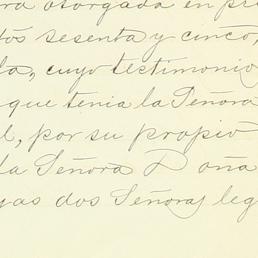 ra otorgada en pr
tós sesenta y cinco,
la, cuyo testimonio
que tenia la Señora
l, por su propio
la Señora Doña
yas dos Señoras leg